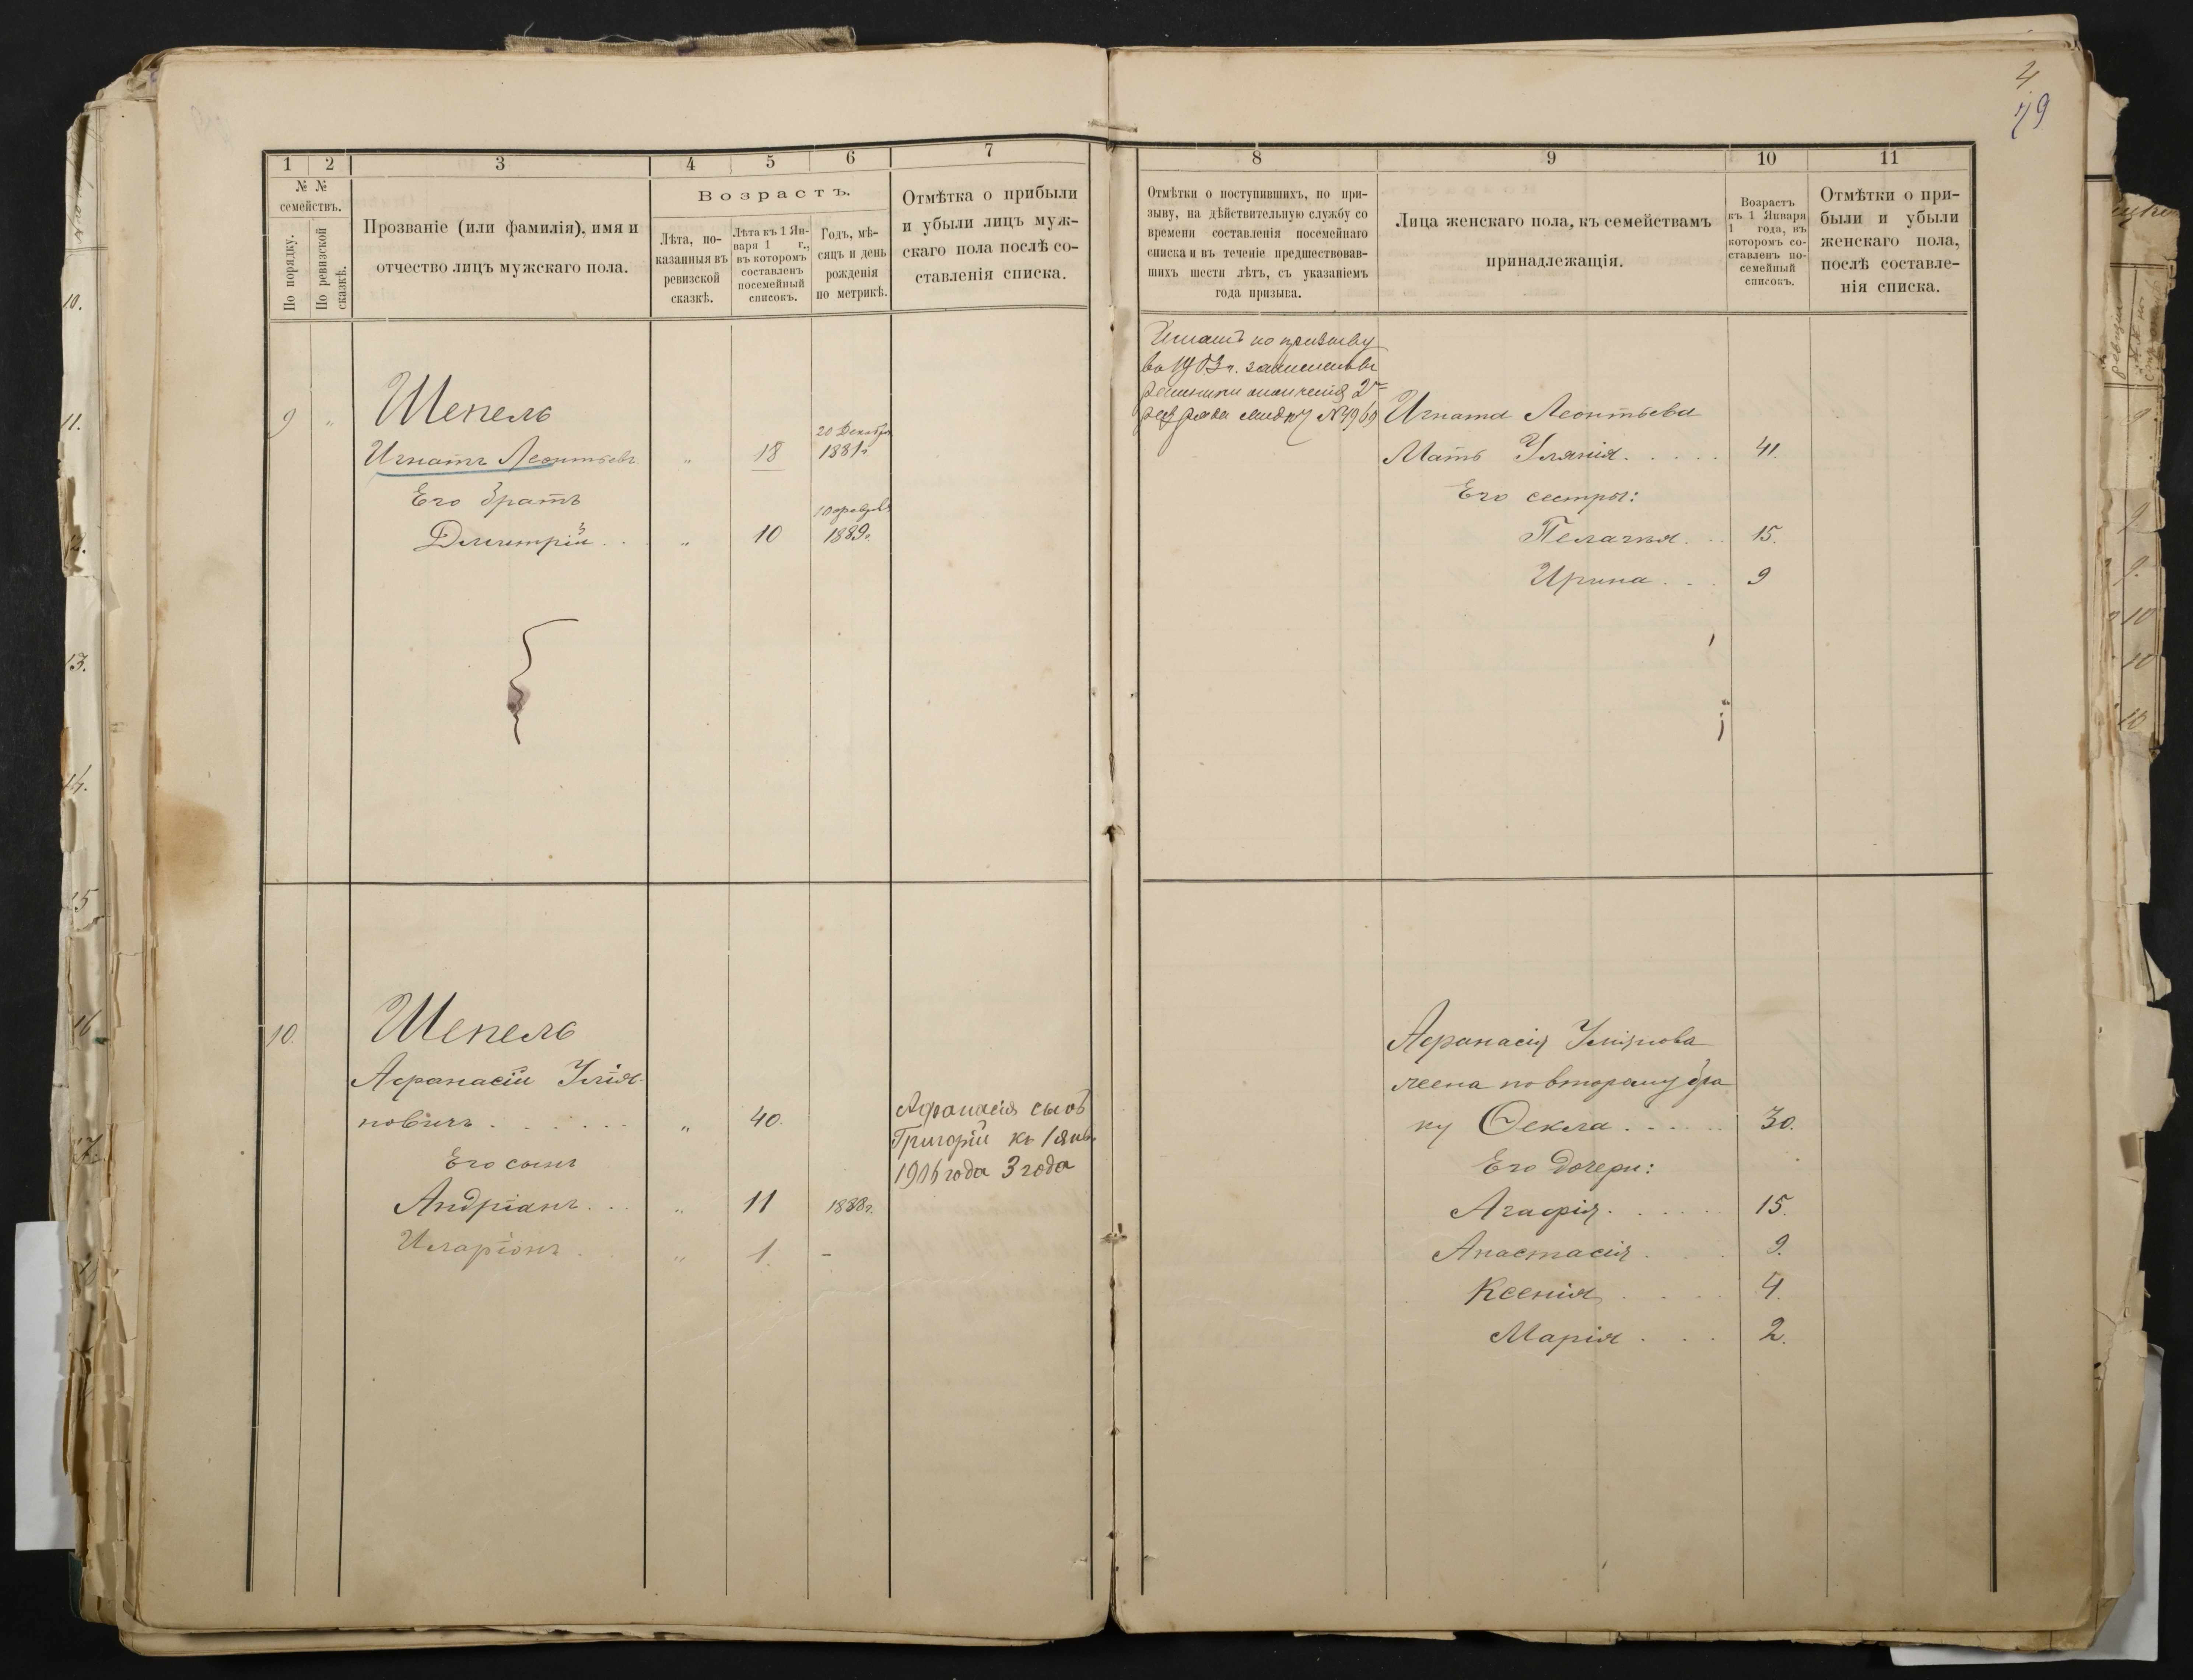 4
79
1
2
3
4
5
6
7
№ №
семействъ.
По порядку.
По ревизской
сказкѣ.
Прозваніе (или фамилія), имя и
отчество лицъ мужскаго пола.
Возрастъ.
Лѣта, по-
казанныя въ
ревизской
сказкѣ.
Лѣта къ 1 Ян-
варя 1 г.,
въ которомъ
составленъ
посемейный
списокъ.
Годъ, мѣ-
сяцъ и день
рожденія
по метрикѣ.
Отмѣтка о прибыли
и убыли лицъ муж-
скаго пола послѣ со-
ставленія списка.
9 "
Шепель
Игнатъ Леонтьевъ " 18 20 Декабря
1881 г.
Его братъ
Дмитрій . . " 10 10 февраля
1889 г.
10.
Шепель
Афанасій Улія-
новичъ . . . . . . " 40.
Его сынъ
Андріанъ . . . " 11 1888 г.
Иларіонъ . " 1. –
Афанасія сынъ
Григорій къ 1 янв.
1906 года 3 года
8
9
10
11
Отмѣтки о поступившихъ, по при-
зыву, на дѣйствительную службу со
времени составленія посемейнаго
списка и въ теченіе предшествовав-
шихъ шести лѣтъ, съ указаніемъ
года призыва.
Лица женскаго пола, къ семействамъ
принадлежащія.
Возрастъ
къ 1 Января
1 года, въ
которомъ со-
ставленъ по-
семейный
списокъ.
Отмѣтки о при-
были и убыли
женскаго пола,
послѣ составле-
нія списка.
Игнатъ по призыву
въ 1903 г. зачисленъ въ
ратники ополченія 2го
разряда
Игната Леонтьева
Мать Улянія . . . . . 41.
Его сестры:
Пелагея . . 15.
Ирина . . . 9
Афанасія Уліянова
жена по второму бра
ку Ѳекла . . . . . 30.
Его дочери:
Агафія . . . . . 15.
Анастасія . . . 9.
Ксенія . . . . 4.
Марія . . . 2.